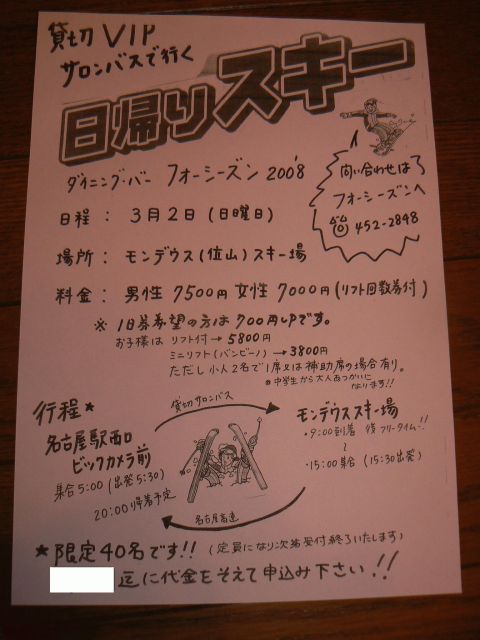 貸切VIP
サロンバスで行く
日帰りスキー
ダイニング・バー フォーシーズン 2008'
問い合わせは
フォーシーズンへ
452-2848
日程: 3月2日(日曜日)
場所: モンデウス(位山)スキー場
料金: 男性 7500円 女性 7000円(リフト回数券付)
※ 1日券希望の方は700円UPです。
お子様は リフト付→5800円
ミニリフト(バンビーノ)→3800円
ただし 小人2名で1席又は補助席の場合有り。
※中学生から大人あつかいになります!!
行程★
貸切サロンバス
名古屋駅西口
ビックカメラ前
集合5:00(出発5:30)
20:00帰着予定
モンデウススキー場
・9:00到着 後フリータイム!!
〜
・15:00集合(15:30出発)
名古屋高速
★限定40名です!!(定員になり次第受付終了いたします)
迄に代金をそえて申込み下さい!!